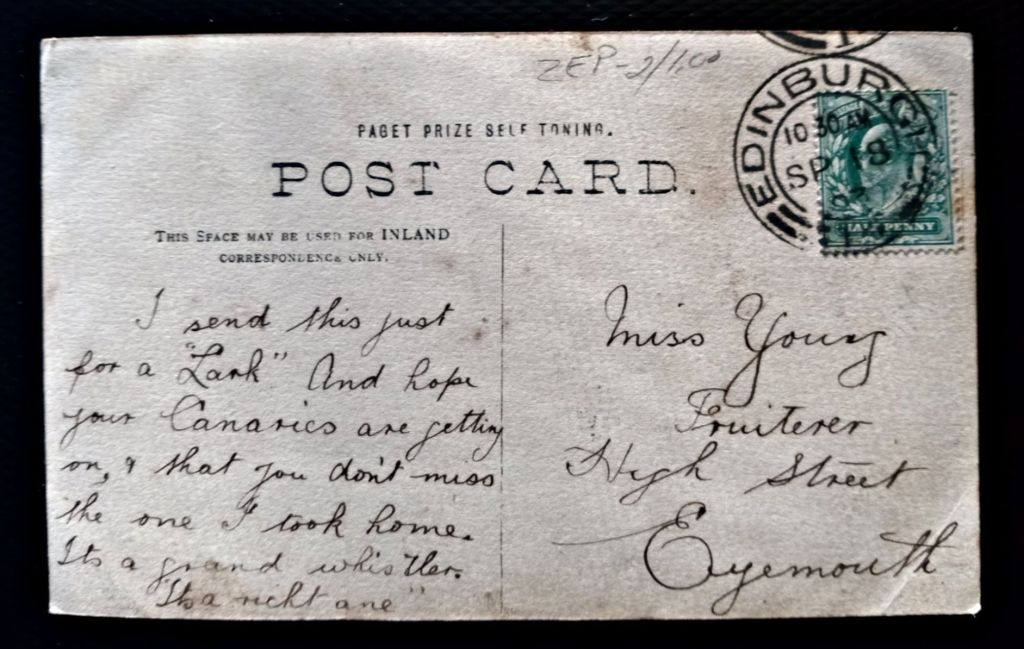 ZEP-2/1.00
PAGET PRIZE SELF TONING.
POST CARD.
THIS SPACE MAY BE USED FOR INLAND
CORRESPONDENCE ONLY.
EDINBURGH
10 30 AM
SP 18
HALFPENNY
I send this just
for a "Lark" And hope
your Canaries are getting
on, & that you don't miss
the one I took home.
Its a grand whistler.
Its a richt ane"
Miss Young
Fruiterer
High Street
Eyemouth